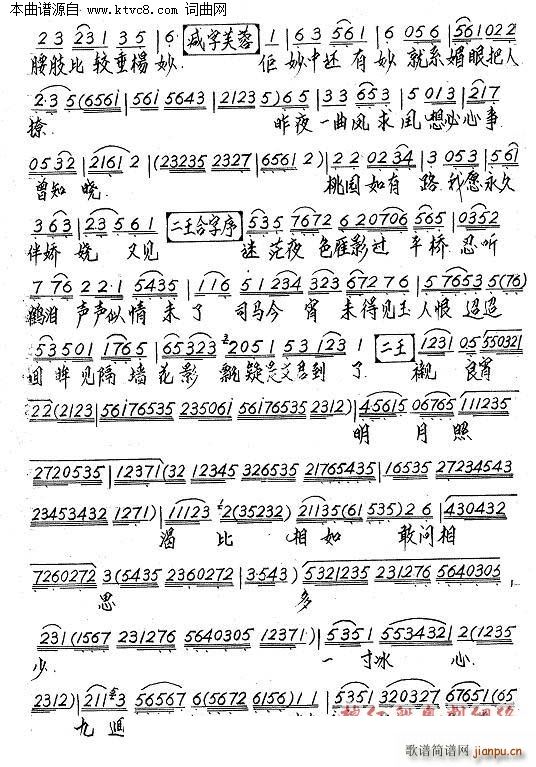 本曲谱源自 www.ktvc8.com 词曲网
2 3 2 3 1 3 5 | 6· 减字芙蓉 1 | 6 3 5 6 1 | 0 5 6 | 5 6 1 0 2 2
腰肢比较垂杨妙. 佢妙中还有妙 就系媚眼把人
2·3 5 (6561 | 561 5643 | 2123 5) 6 5 | 3 3 6 5 3 | 5 0 1 3 | 2 1 7
撩. 昨夜一曲凤求凰想必心事
0 5 3 2 | 2 1 6 1 2 | (23235 2327 | 6561 2) | 2 2 0 2 3 4 | 3 0 5 3 | 5 6 1
曾知晓. 桃园如有路.我愿永久
3 6 3 | 2 3 5 6 1 二王合字序 5 3 5 7672 6 20706 5 6 5 | 0352
伴娇娆 又见 迷花夜色 影过平桥忍听
7 76 2 2·1 5435 | 116 5 1234 323 67276 | 5 7653 5 (76)
鹤泪声声似情未了 司马今宵未得见玉人恨迢迢
53501 1765 | 65323 2051 53123 1 二王 1231 05 550321
回眸见隔墙花影 飘疑是 到了. 衬良宵
22 (2123 | 56176535 235061 56176535 2312) | 45615 06765 111235
明月照
2720535 | 12371 (32 12345 326535 21765435 | 16535 27234543
23453432 1271) | 11123 2 (35232) 21135 (61 535) 2 6 | 430432
渴比相如敢问相
7260272 3 (5435 2360272 | 3·543) | 5321235 231276 5640305
思多
231 (1567 231276 5640305 12371) | 5351 553432 | 2 (1235
少. 一寸冰心
2312) | 211 3 56567 6 (5672 6156) | 1 1 | 5351 320327 67651 (65
九回
歌谱简谱网
jianpu.cn